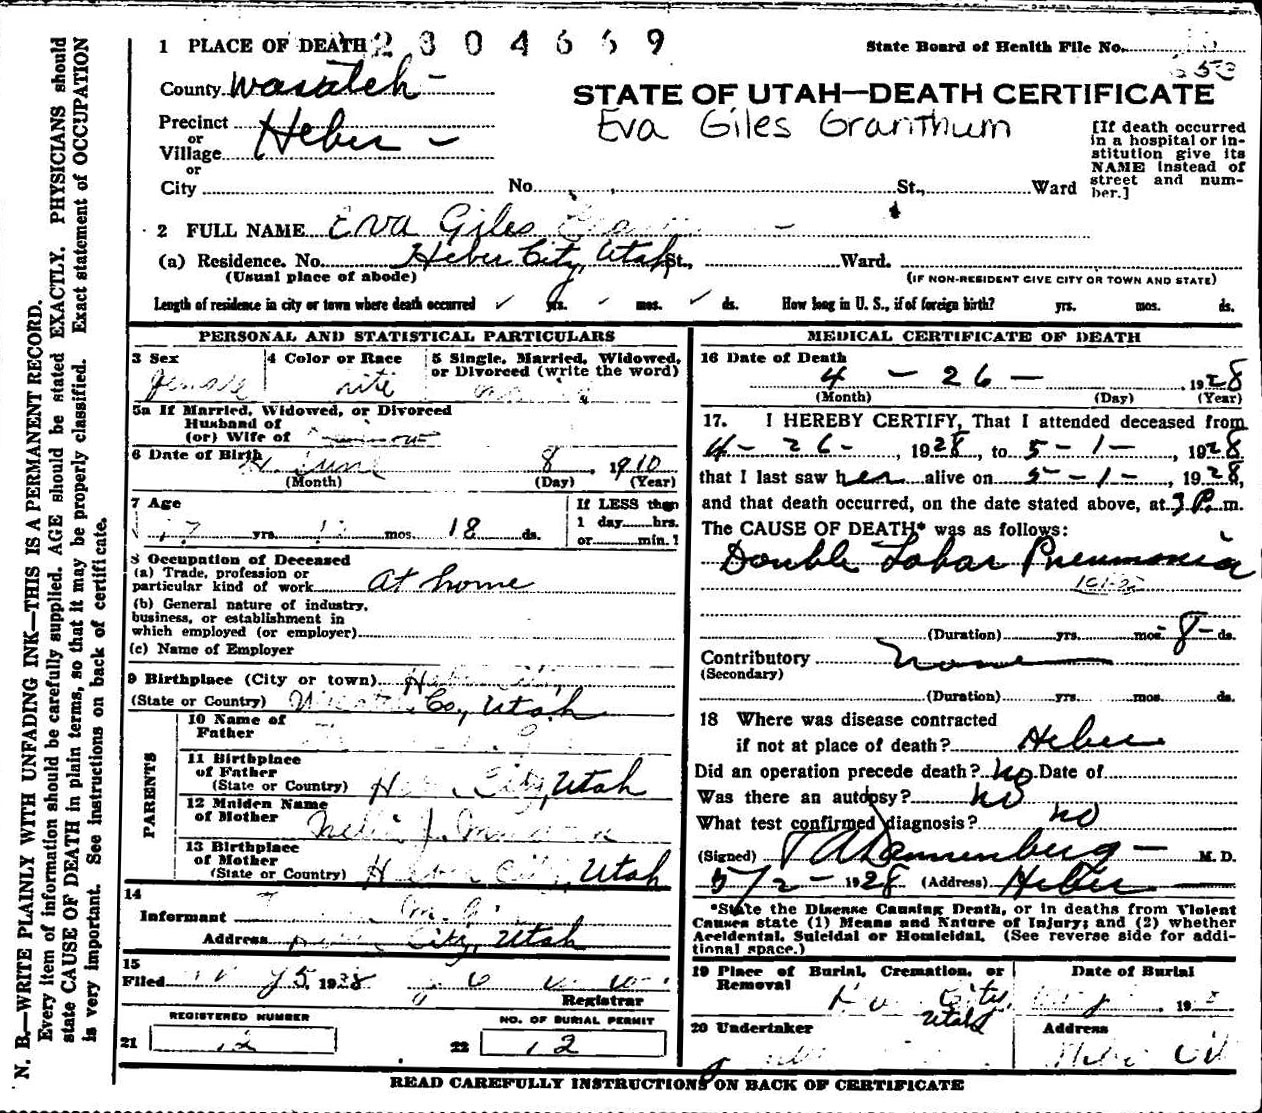 N. B.—WRITE PLAINLY WITH UNFADING INK—THIS IS A PERMANENT RECORD.
Every item of information should be carefully supplied. AGE should be stated EXACTLY. PHYSICIANS should
state CAUSE OF DEATH in plain terms, so that it may be properly classified. Exact statement of OCCUPATION
is very important. See instructions on back of certificate.
1 PLACE OF DEATH 2304669
State Board of Health File No.
County Wasatch
STATE OF UTAH—DEATH CERTIFICATE
Eva Giles Granthum
Precinct
or
Village Heber
or
City No. St., Ward
[If death occurred
in a hospital or in-
stitution give its
NAME instead of
street and num-
ber.]
2 FULL NAME Eva Giles
(a) Residence. No. Heber City, Utah St., Ward.
(Usual place of abode)
(IF NON-RESIDENT GIVE CITY OR TOWN AND STATE)
Length of residence in city or town where death occurred yrs. mos. ds. How long in U. S., if of foreign birth? yrs. mos. ds.
PERSONAL AND STATISTICAL PARTICULARS
3 Sex
Female
4 Color or Race
5 Single, Married, Widowed,
or Divorced (write the word)
5a If Married, Widowed, or Divorced
Husband of
(or) Wife of
6 Date of Birth June 8, 1910
(Month) (Day) (Year)
7 Age
17 yrs. mos. 18 ds.
If LESS than
1 day hrs.
or min.?
8 Occupation of Deceased
(a) Trade, profession or
particular kind of work At home
(b) General nature of industry,
business, or establishment in
which employed (or employer)
(c) Name of Employer
9 Birthplace (City or town)
(State or Country) Co, Utah
PARENTS
10 Name of
Father
11 Birthplace
of Father
(State or Country) City, Utah
12 Maiden Name
of Mother
13 Birthplace
of Mother
(State or Country) Heber City, Utah
14
Informant
Address City, Utah
15
Filed 1928
Registrar
REGISTERED NUMBER
21 12
NO. OF BURIAL PERMIT
22 12
MEDICAL CERTIFICATE OF DEATH
16 Date of Death
4 - 26 - 1928
(Month) (Day) (Year)
17. I HEREBY CERTIFY, That I attended deceased from
4 - 26 -, 1928, to 5 - 1 -, 1928
that I last saw her alive on 5 - 1 -, 1928,
and that death occurred, on the date stated above, at 3 P. m.
The CAUSE OF DEATH* was as follows:
Double Lobar Pneumonia
(Duration) yrs. mos. 8 ds.
Contributory None
(Secondary)
(Duration) yrs. mos. ds.
18 Where was disease contracted
if not at place of death? Heber
Did an operation precede death? No Date of
Was there an autopsy? No
What test confirmed diagnosis? No
(Signed) Dannenberg M. D.
5/2 - 1928 (Address) Heber
*State the Disease Causing Death, or in deaths from Violent
Causes state (1) Means and Nature of Injury; and (2) whether
Accidental, Suicidal or Homicidal. (See reverse side for addi-
tional space.)
19 Place of Burial, Cremation, or
Removal
City,
Utah
Date of Burial
20 Undertaker
Address
READ CAREFULLY INSTRUCTIONS ON BACK OF CERTIFICATE